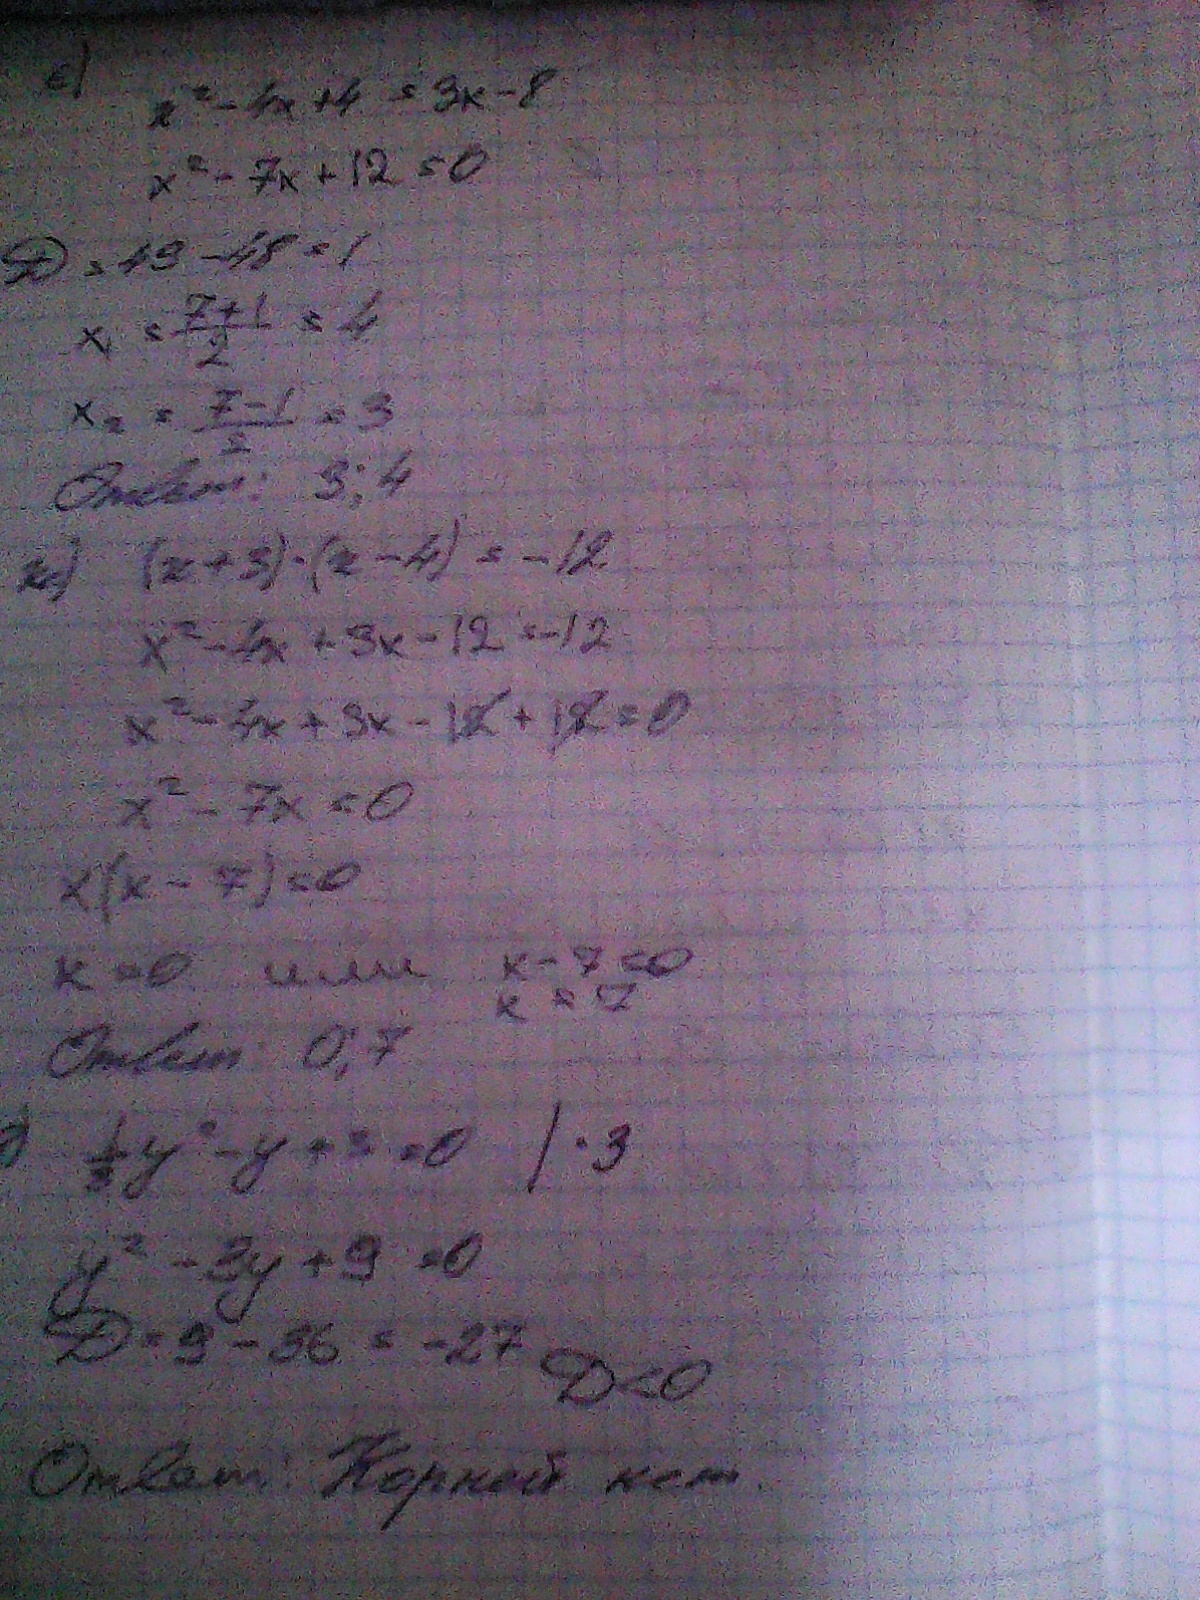 е) x² - 4x + 4 = 3x - 8
x² - 7x + 12 = 0
D = 49 - 48 = 1
x₁ = (7+1)/2 = 4
x₂ = (7-1)/2 = 3
Ответ: 3; 4
ж) (x+3)·(x-4) = -12
x² - 4x + 3x - 12 = -12
x² - 4x + 3x - 12 + 12 = 0
x² - 7x = 0
x(x - 7) = 0
x = 0 или x - 7 = 0
x = 7
Ответ: 0; 7
) 1/3 y² - y + 3 = 0 | · 3
y² - 3y + 9 = 0
D = 9 - 36 = -27 D<0
Ответ: Корней нет.